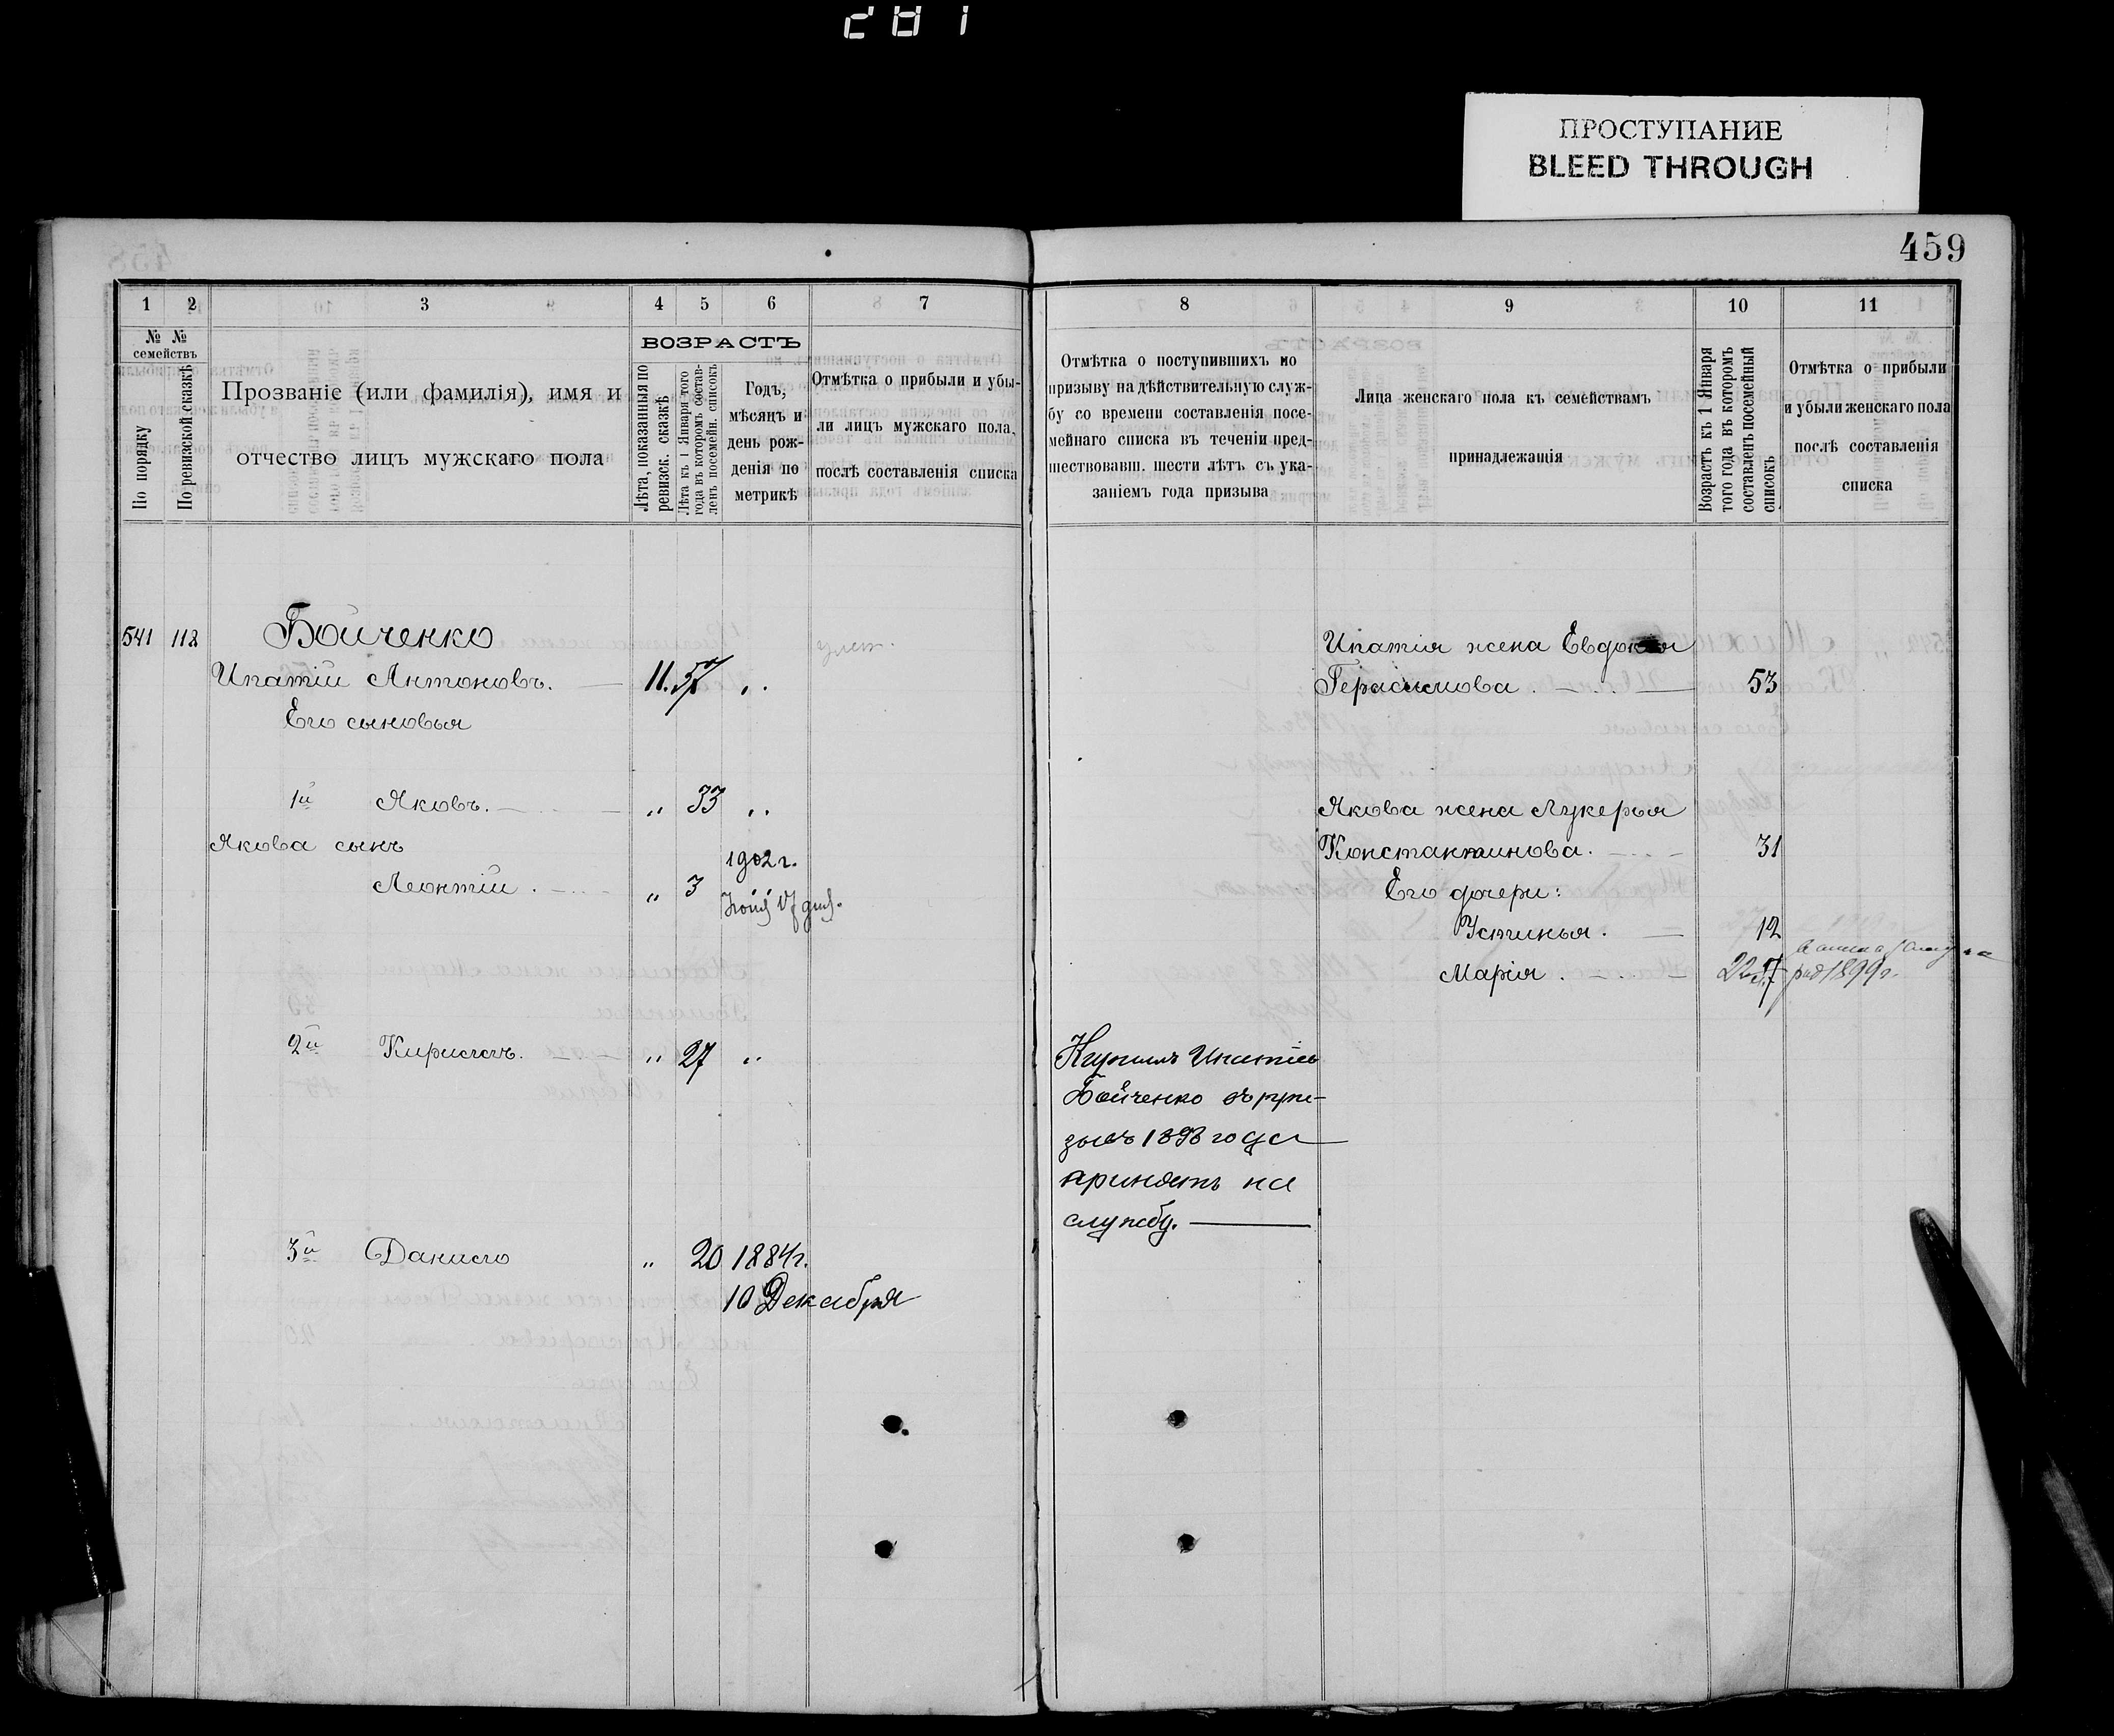 281
ПРОСТУПАНИЕ
BLEED THROUGH
459
1 2 3 4 5 6 7
№ №
семействъ
По порядку
По ревизской сказкѣ
Прозваніе (или фамилія), имя и
отчество лицъ мужскаго пола
ВОЗРАСТЪ
Лѣта, показанныя по
ревизск. сказкѣ
Лѣта къ 1 Января того
года въ которомъ состав-
ленъ посемейн. списокъ
Годъ,
мѣсяцъ и
день рож-
денія по
метрикѣ
Отмѣтка о прибыли и убы-
ли лицъ мужскаго пола,
послѣ составленія списка
541 112 Бойченко
Ипатій Антоновъ. 11. 57 „
Его сыновья
1й Яковъ. „ 33 „
Якова сынъ
1902 г.
Леонтій. „ 3
2й Кириллъ. „ 27 „
3й Данило „ 20 1884 г.
10 Декабря
8 9 10 11
Отмѣтка о поступившихъ по
призыву на дѣйствительную служ-
бу со времени составленія посе-
мейнаго списка въ теченіи пред-
шествовавш. шести лѣтъ съ ука-
заніемъ года призыва
Лица женскаго пола къ семействамъ
принадлежащія
Возрастъ къ 1 Января
того года въ которомъ
составленъ посемейный
списокъ
Отмѣтка о прибыли
и убыли женскаго пола
послѣ составленія
списка
Ипатія жена Евдокія
Герасимова. 53
Якова жена Лукерья
Константинова. 31
Его дочери:
Устинья. 12
Марія. 1899 г.
Кириллъ Ипатіев
Бойченко въ при-
зывъ 1898 года
принятъ на
службу.